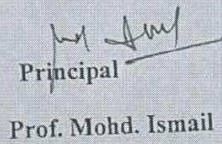 Principal
Prof. Mohd. Ismail